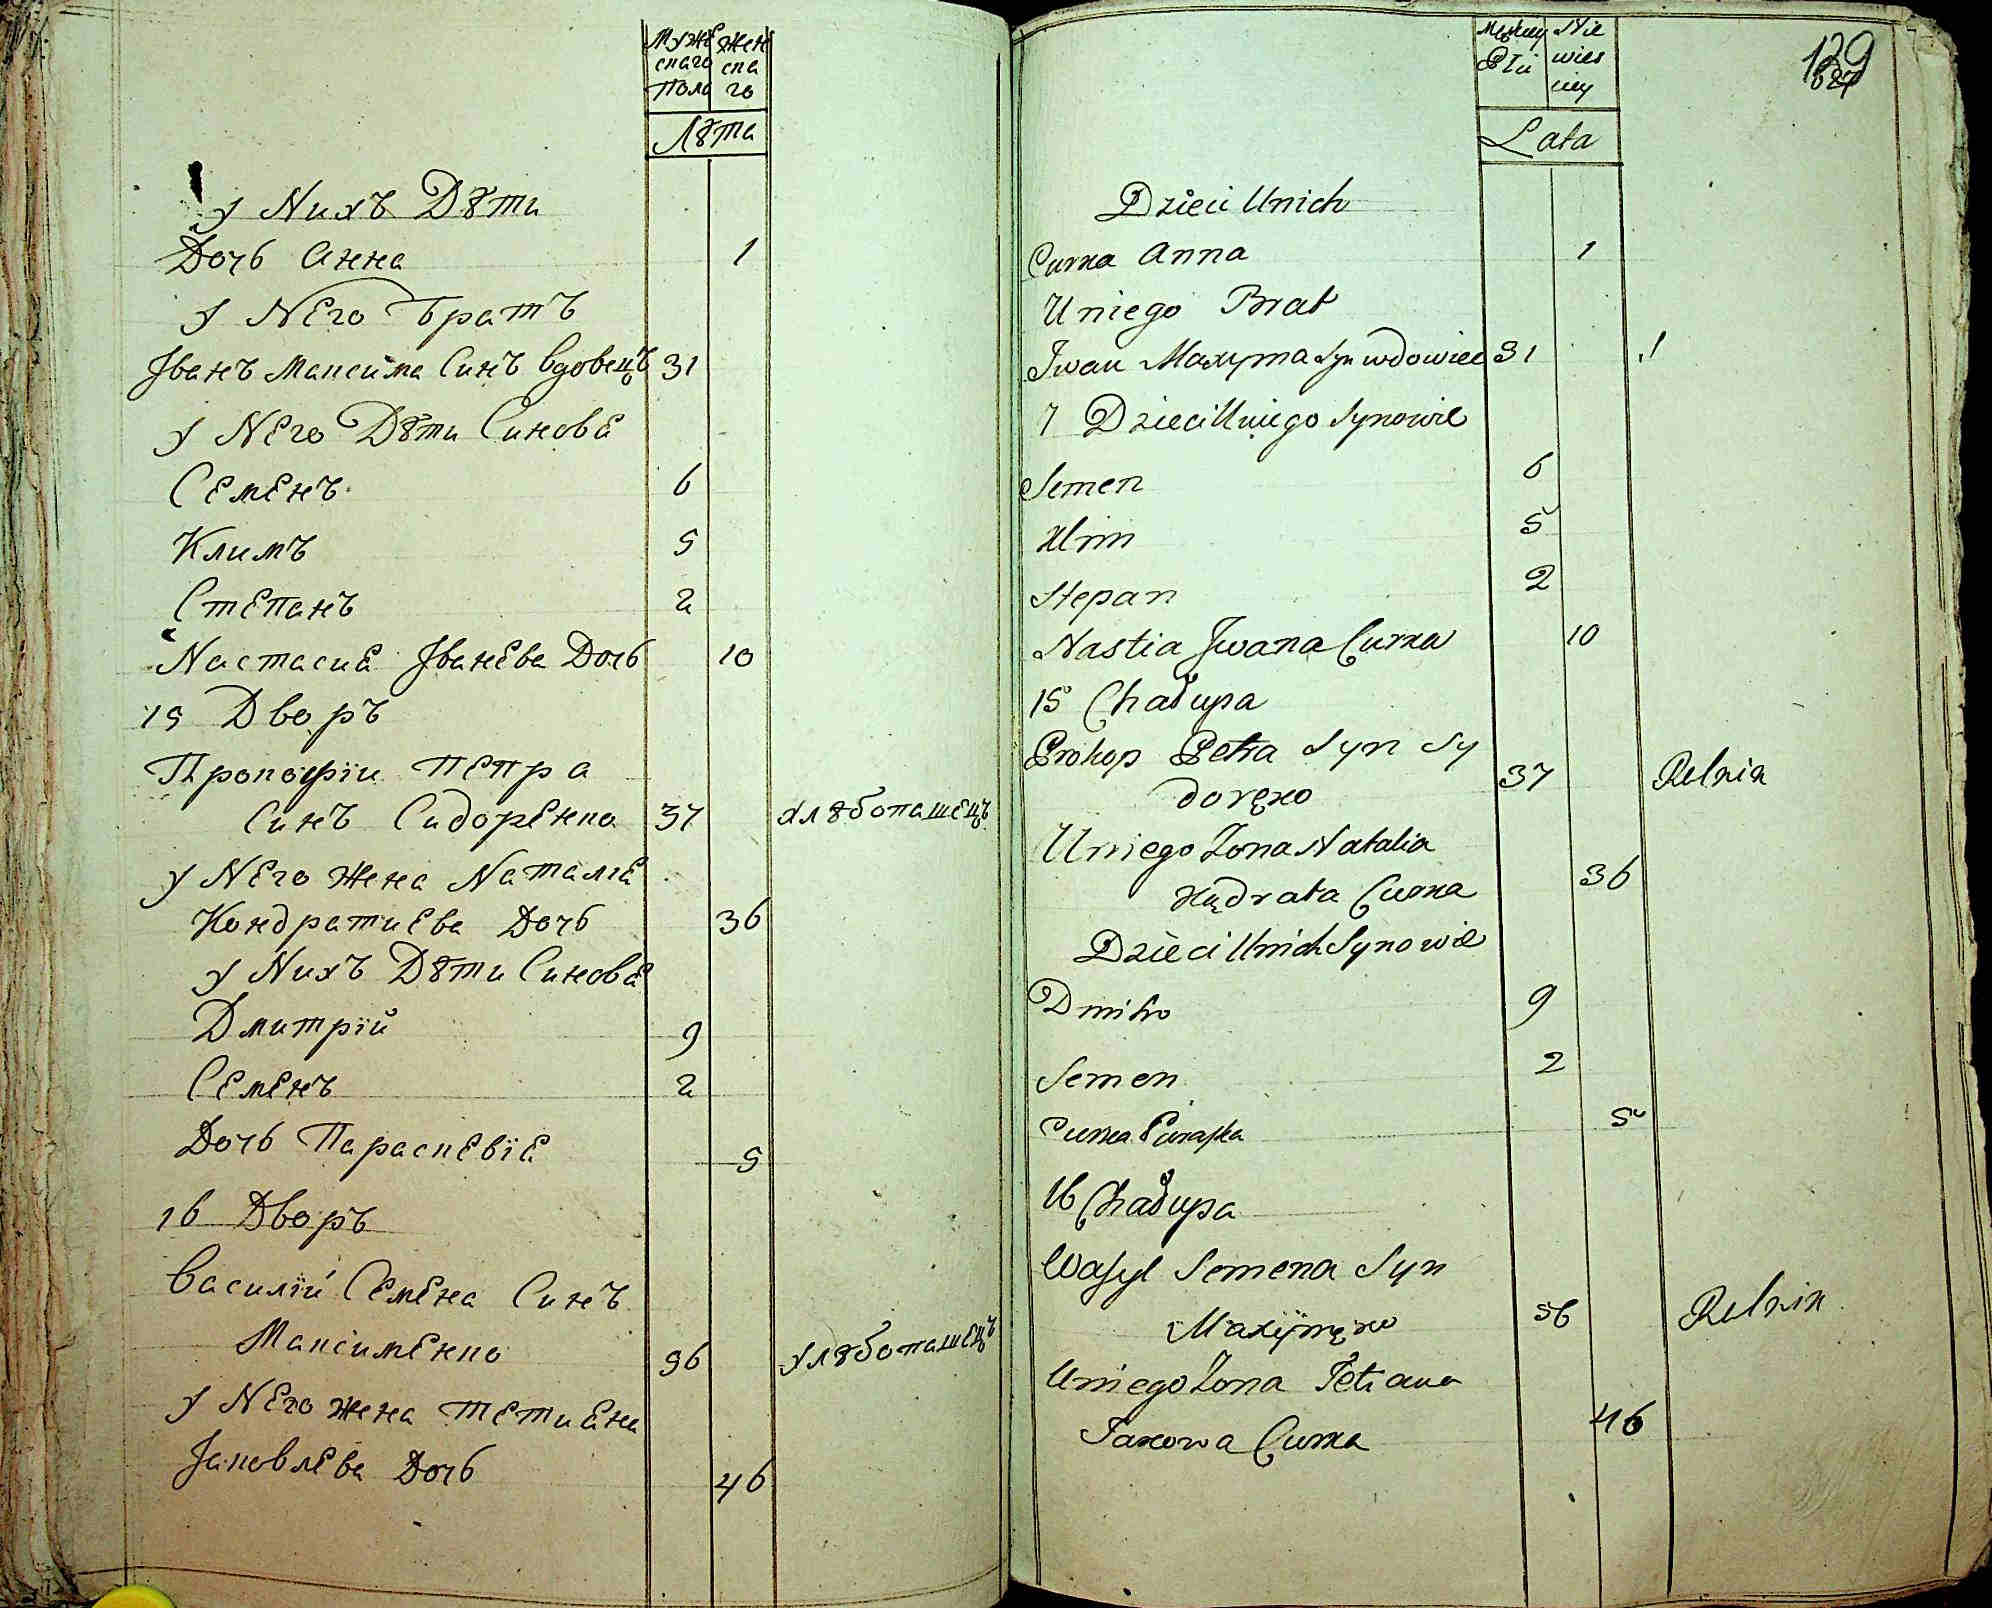 Муже
скаго
Пола
Жен
ска
го
Лѣта
у Нихъ Дѣти
Дочь Анна 1
у Него Братъ
Іванъ Максима Синъ вдовецъ 31
у Него Дѣти Синове
Семенъ 6
Климъ 5
Степанъ 2
Настасие Іванева Дочь 10
15 Дворъ
Прокофіи Петра
Синъ Сидоренко 37 хлѣбопашецъ
у Него жена Наталие
Кондратиева Дочь 36
у Нихъ Дѣти Синове
Дмитрїй 9
Семенъ 2
Дочь Параскевїе 5
16 Дворъ
Василїй Семена Синъ
Максименко 56 хлѣбопашецъ
у Него жена Тетиена
Іаковлева Дочь 46
129
Męskiey
Płci
Nie
wies
ciey
Lata
Dzieci Unich
Curka Anna 1
Uniego Brat
Jwan Maxyma Syn wdowiec 31
7 Dzieci Uniego Synowie
Semen 6
Klim 5
Stepan 2
Nastia Jwana Curka 10
15 Chałupa
Prokop Petra Syn Sy
doręko 37 Rolnik
Uniego Zona Natalia
Kądrata Curka 36
Dzieci Unich Synowie
Dmitro 9
Semen 2
Curka Paraska 5
16 Chałupa
Wasyl Semena Syn
Maxymęko 56 Rolnik
Uniego Zona Tetiana
Jakowa Curka 46